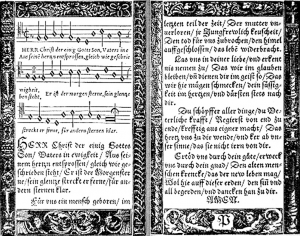 HERR Christ der einig Gottes Son, Vaters inn
Aus seim hertzen entsprossen, gleich wie geschrie
wigkeit,
ben steht,
Er ist der morgen sterne, sein glentze
strecket er ferne, für andern sternen klar.
HERR Christ der einig Gottes
Son / Vaters in ewigkeit / Aus sei
nem hertzen entsprossen / gleich wie ge
schrieben stehet / Er ist der Morgenster
ne / sein glentze strecket er ferne / für an
dern sternen klar.
Für uns ein mensch geboren / im
letzten teil der zeit / Der mutter un
uerloren / jr Jungfrewlich keuscheit /
Den tod für uns zubrochen / den himel
auffgeschlossen / das leben widderbracht.
Las uns in deiner liebe / und erkent
nis nemen zu / Das wir im glauben
bleiben / und dienen dir im geist so / Das
wir hie mügen schmecken / dein süssig
keit im hertzen / und dürsten stets nach
dir.
Du schöpffer aller dinge / du Ve
terliche krafft / Regierst von end zu
ende / krefftig aus eigner macht / Das
hertz uns zu dir wende / und ker ab un
ser sinne / das sie nicht irren von dir.
Ertöd uns durch dein güte / erweck
uns durch dein gnad / Den alten men
schen krencke / das der new leben mag /
Wol hie auff dieser erden / den sin und
all begerden / und dancken han zu dir.
AMEN.